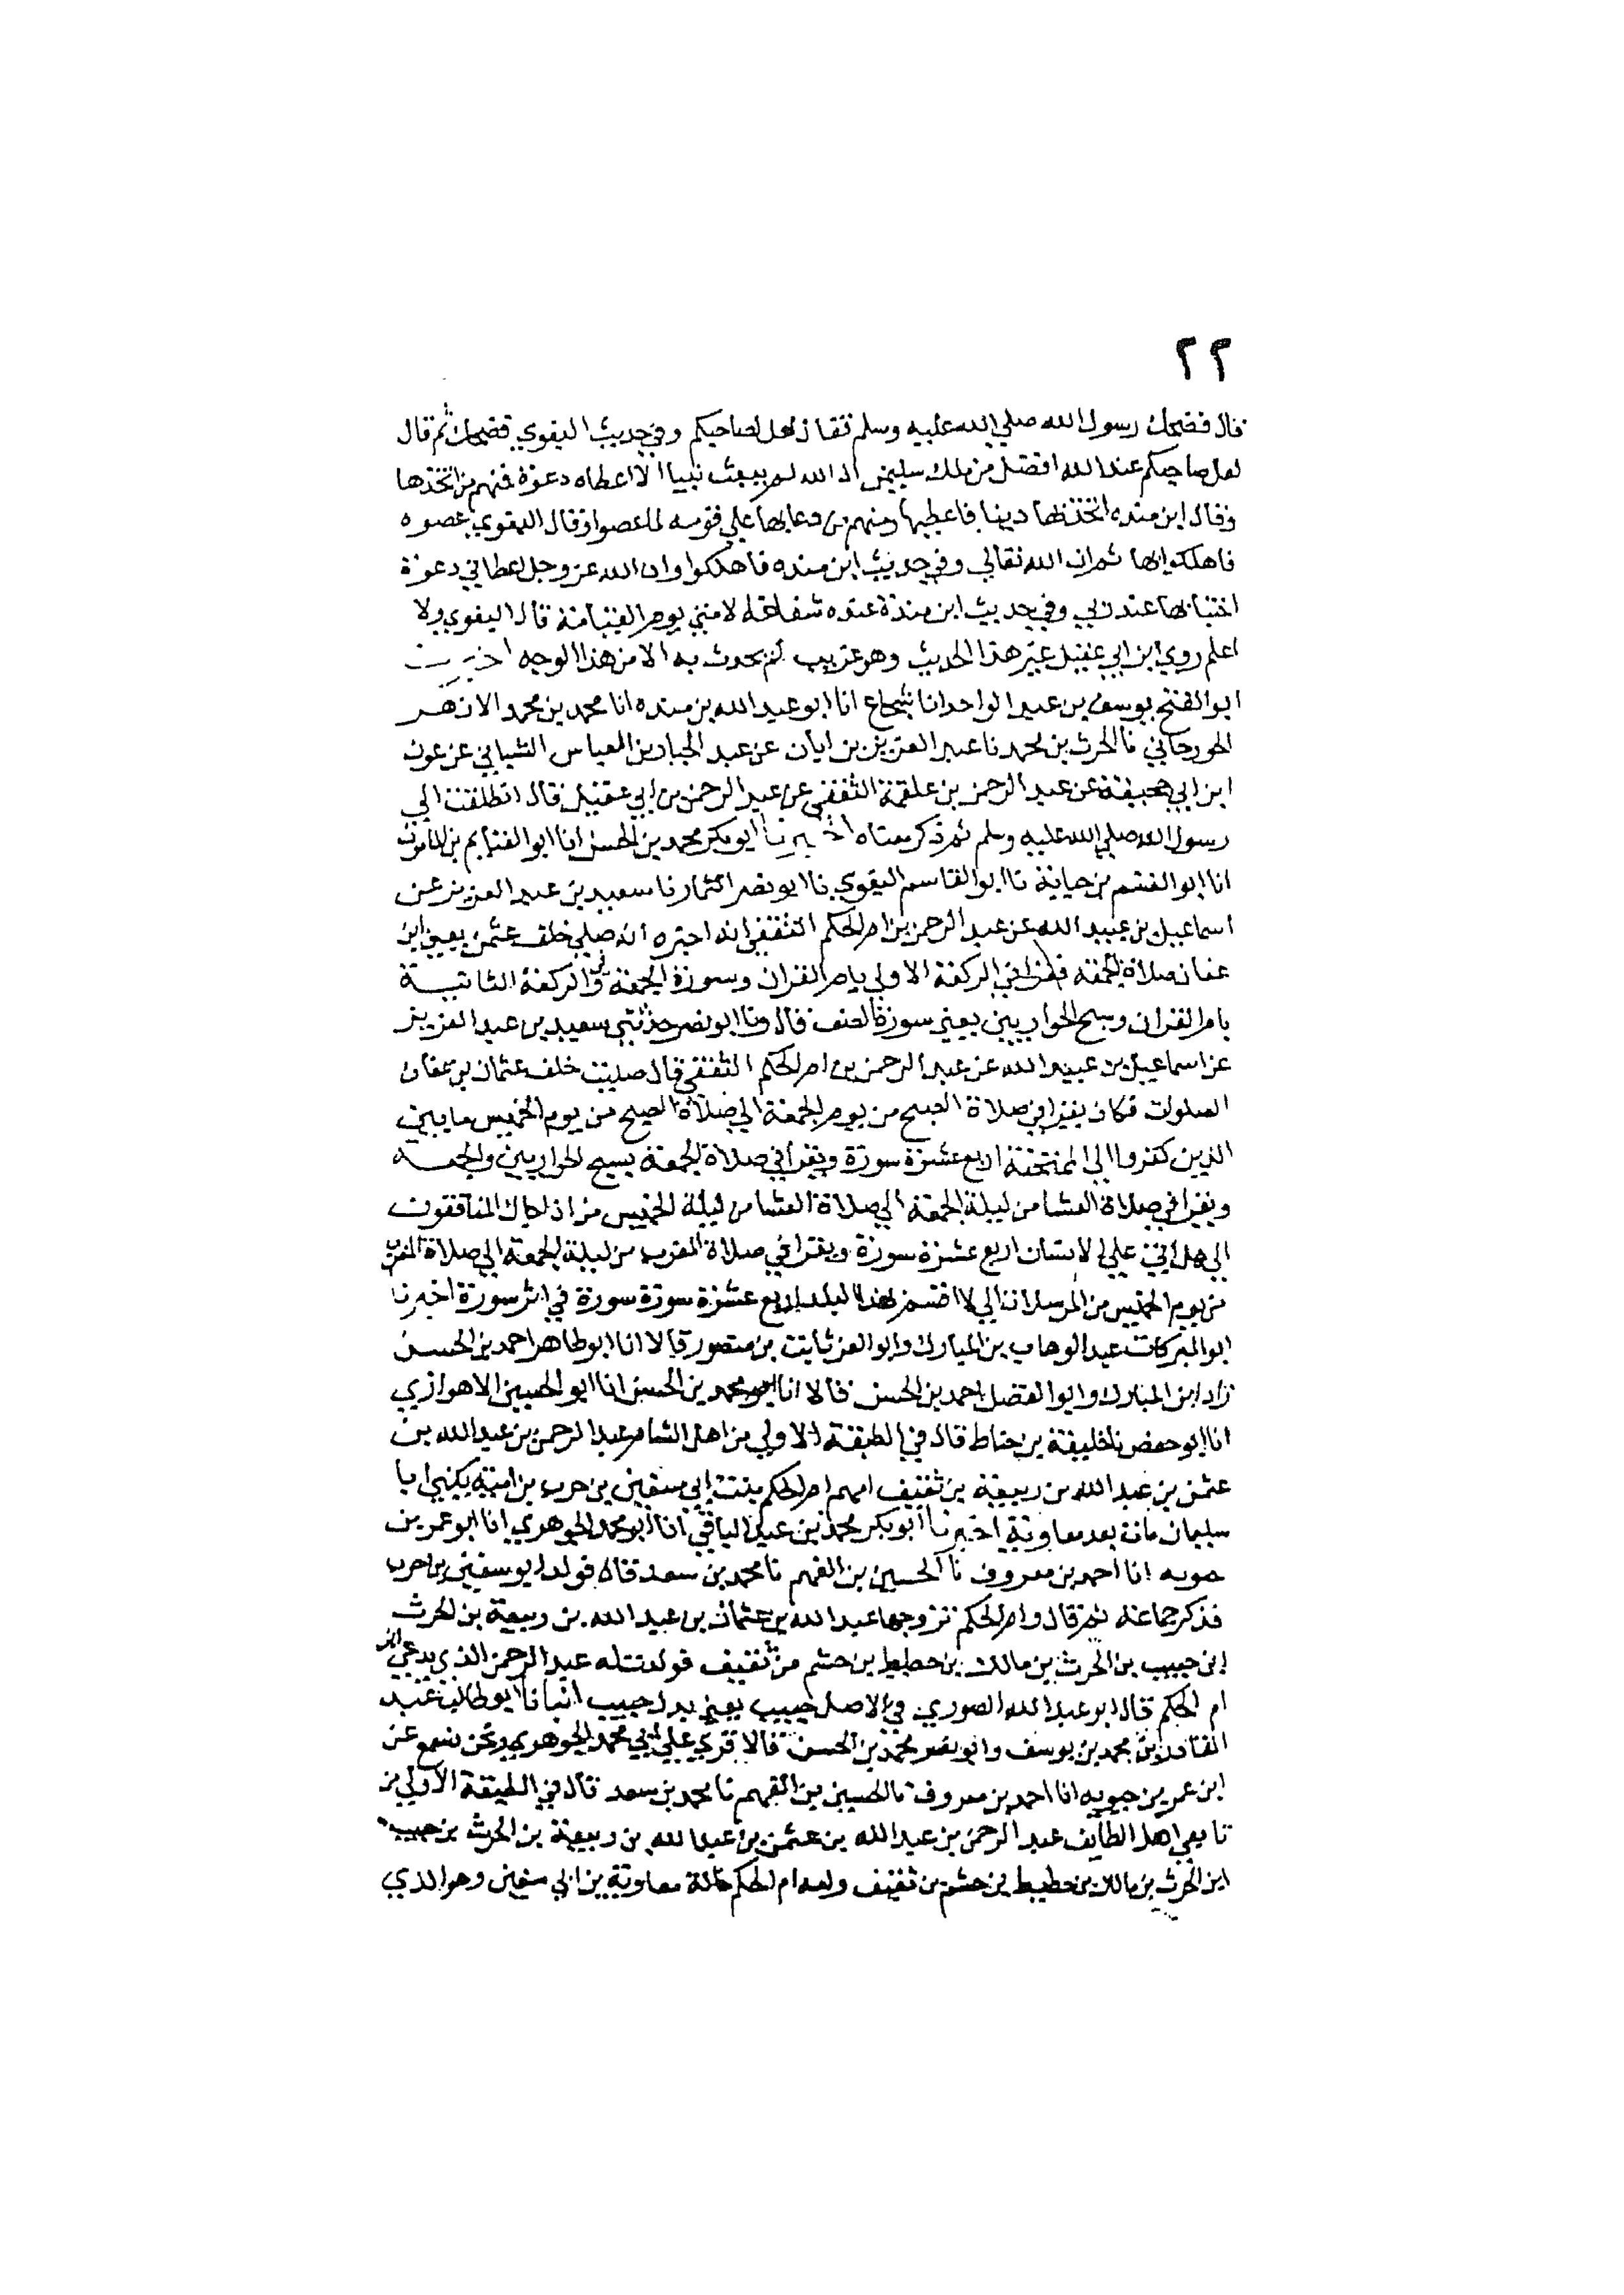 ٢٢
قال فضحك رسول الله صلي الله عليه وسلم فقال لعل لصاحبكم وفي حديث البغوي فضحك ثم قال
لعل صاحبكم عند الله افضل من ملك سليمن ان الله لم يبعث نبيا الا اعطاه دعوة فمنهم من اتخذها
وقال ابن منده اتخذ بها دينا فاعطيها ومنهم من دعا بها علي قومه لما عصوا وقال البغوي عصوه
فاهلكوا بها ثم ان الله تعالي وفي حديث ابن منده فاهلكوا وان الله عز وجل اعطاني دعوة
اختباتها عند ربي وفي حديث ابن مندة عنده شفاعة لامتي يوم القيامة قال البغوي ولا
اعلم روي ابن ابي عقيل غير هذا الحديث وهو غريب لم يحدث به الا من هذا الوجه اخبرنا
ابو الفتح يوسف بن عبد الواحد انا شجاع انا ابو عبد الله بن منده انا محمد بن محمد الازهر
الجورجاني نا الحرث بن محمد نا عبد العزيز بن ابان عن عبد الجبار بن العباس الشبابي عن عون
ابن ابي جحيفة عن عبد الرحمن بن علقمة الثقفي عن عبد الرحمن بن ابي عقيل قال انطلقت الي
رسول الله صلي الله عليه وسلم ثم ذكر معناه اخبرنا ابو بكر محمد بن الحسن انا ابو الغنايم بن المامون
انا ابو القسم بن حبابة نا ابو القاسم البغوي نا ابو نصر التمار نا سعيد بن عبد العزيز عن
اسماعيل بن عبيد الله عن عبد الرحمن بن ام الحكم الثقفي انه اخبره انه صلي خلف عثمن يعني ابن
عفان صلاة الجمعة فقرا في الركعة الاولي بام القران وسورة الجمعة وفي الركعة الثانية
بام القران وسبح الحواريين يعني سورة الصف قال ونا ابو نصر حدثني سعيد بن عبد العزيز
عن اسماعيل بن عبيد الله عن عبد الرحمن بن ام الحكم الثقفي قال صليت خلف عثمان بن عفان
الصلوات فكان يقرا في صلاة الصبح من يوم الجمعة الي صلاة الصبح من يوم الخميس ما بين
الذين كفروا الي الممتحنة اربع عشرة سورة ويقرا في صلاة الجمعة بسبح الحواريين والجمعة
ويقرا في صلاة العشا من ليلة الجمعة الي صلاة العشا من ليلة الخميس من اذا جاك المنافقون
الي هل اتي علي الانسان اربع عشرة سورة ويقرا في صلاة المغرب من ليلة الجمعة الي صلاة المغرب
من يوم الخميس من المرسلات الي لا اقسم بهذا البلد اربع عشرة سورة سورة في اثر سورة اخبرنا
ابو البركات عبد الوهاب بن المبارك وابو العز ثابت بن منصور قالا انا ابو طاهر احمد بن الحسن
زاد ابن المبارك وابو الفضل احمد بن الحسن قالا انا محمد بن الحسن انا ابو الحسين الاهوازي
انا ابو حفص نا خليفة بن خياط قال في الطبقة الاولي من اهل الشام عبد الرحمن بن عبد الله بن
عثمن بن عبد الله بن ربيعة من ثقيف امهم ام الحكم بنت ابي سفين بن حرب بن امية يكني ابا
سليمان مات بعد معاوية اخبرنا ابو بكر محمد بن عبد الباقي انا ابو محمد الجوهري انا ابو عمر بن
حيويه انا احمد بن معروف نا الحسين بن الفهم نا محمد بن سعد قال فولد ابو سفين بن حرب
فذكر جماعة ثم قال وام الحكم تزوجها عبد الله بن عثمان بن عبد الله بن ربيعة بن الحرث
ابن حبيب بن الحرث بن مالك بن حطيط بن جشم من ثقيف فولدت له عبد الرحمن الذي يدعي ابن
ام الحكم قال ابو عبد الله الصوري في الاصل خبيب يعني بدل حبيب انبانا ابو طالب عبد
القادر بن محمد بن يوسف وابو نصر محمد بن الحسن قالا قري علي ابي محمد الجوهري ونحن نسمع عن
ابن عمر بن حيويه انا احمد بن معروف نا الحسين بن الفهم نا محمد بن سعد قال في الطبقة الاولي من
تابعي اهل الطايف عبد الرحمن بن عبد الله بن عثمن بن عبد الله بن ربيعة بن الحرث بن حبيب
ابن الحرث بن مالك بن حطيط بن جشم من ثقيف وامه ام الحكم خالة معاوية بن ابي سفين وهو الذي